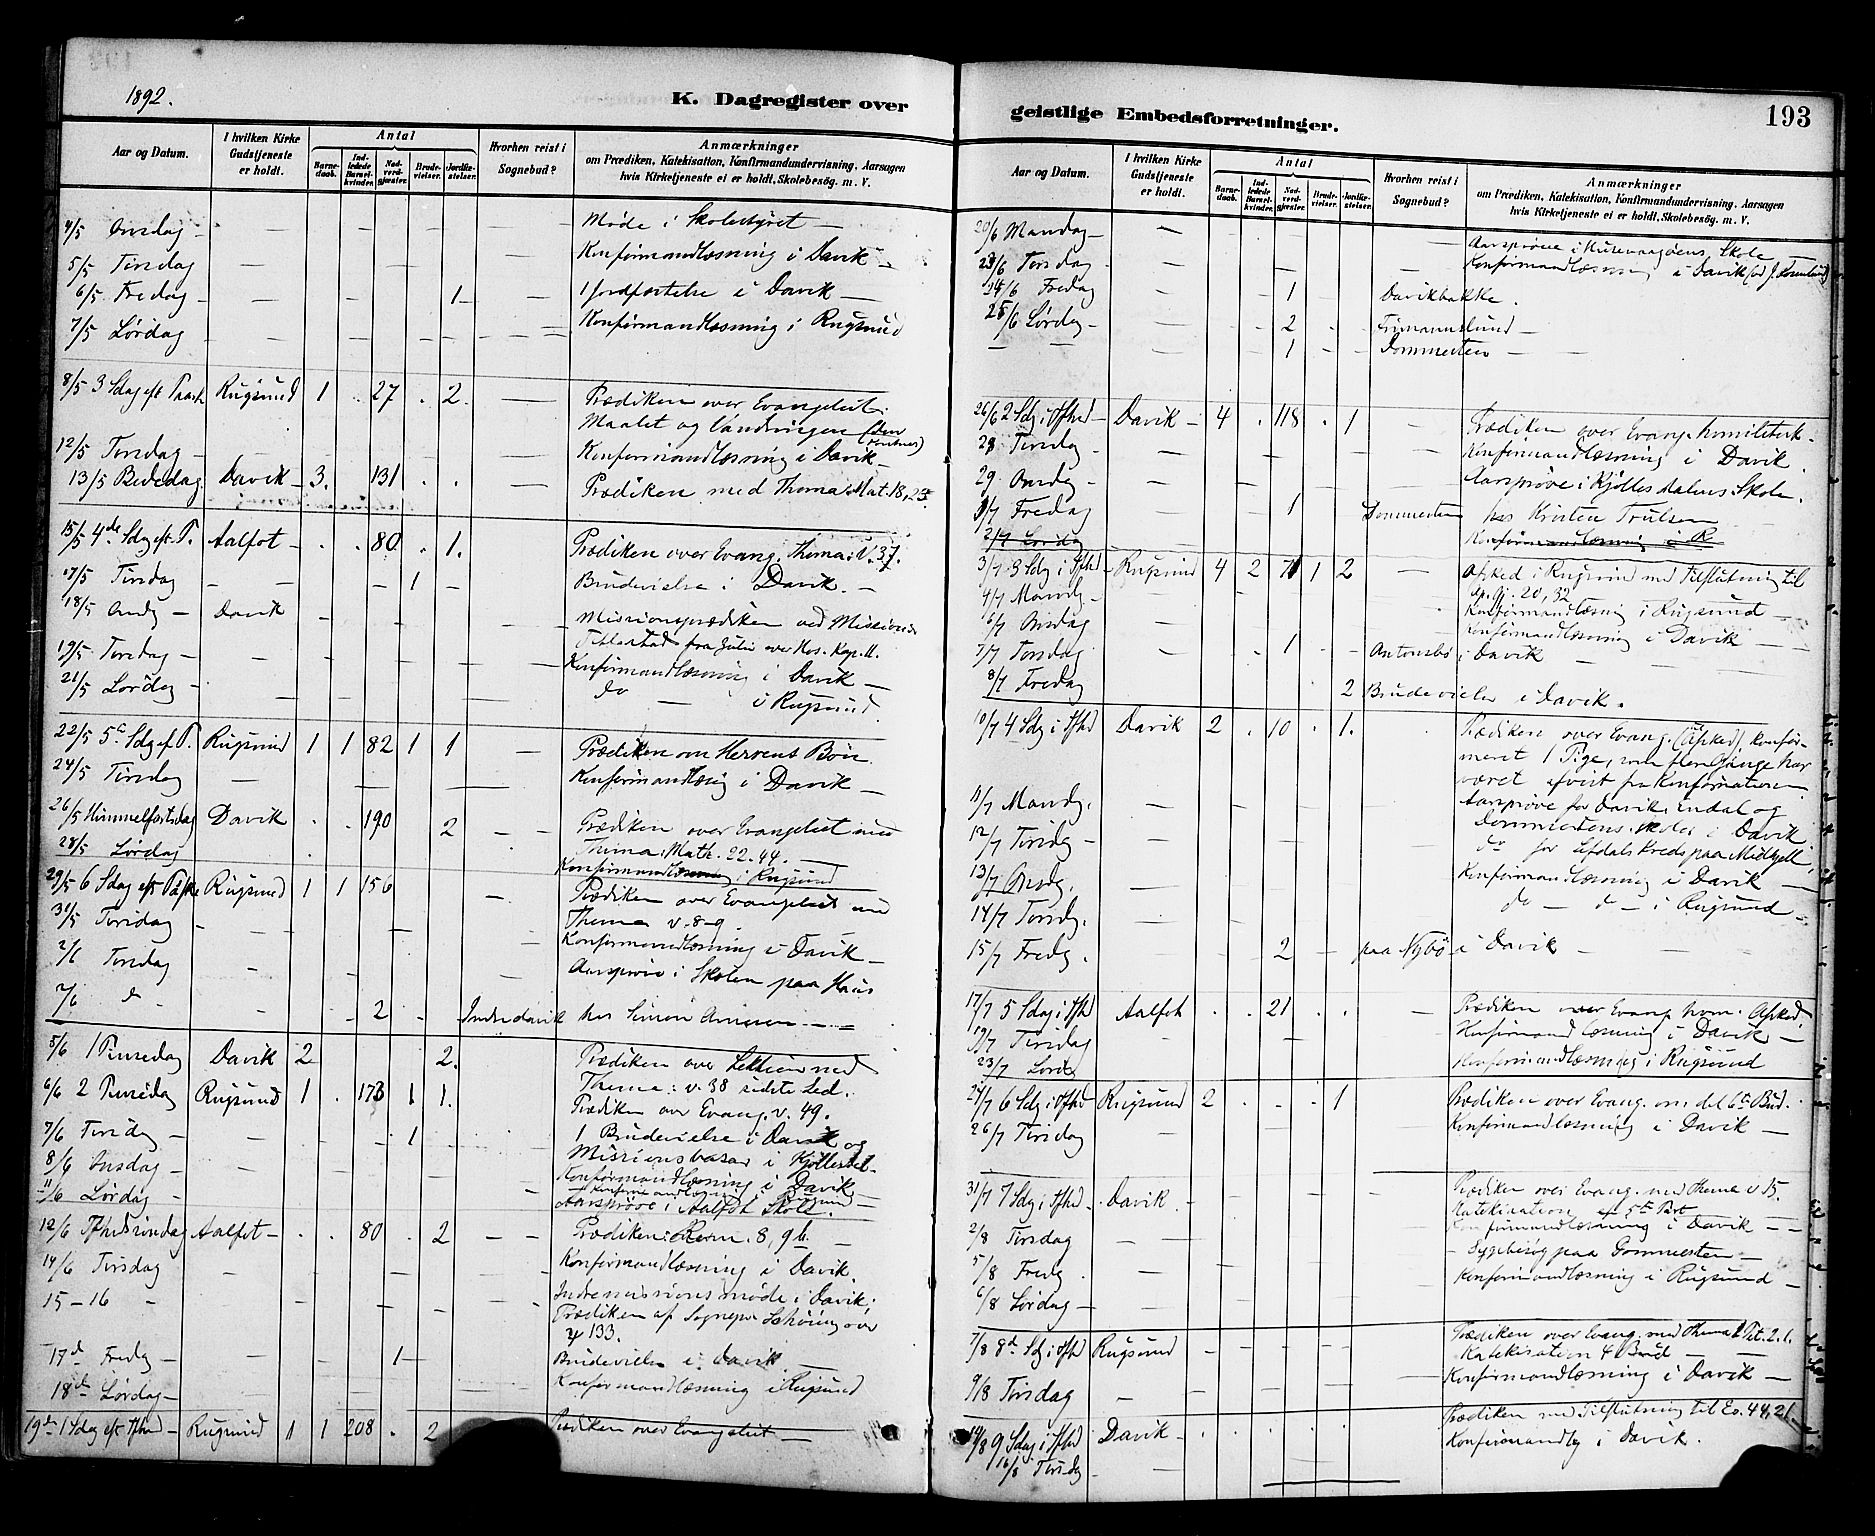 1892.
K. Dagregister over
Aar og Datum. I hvilken Kirke Gudstjeneste er holdt. Antal Barnedaab. Indledede Barselkvinder. Nadverdgjæster. Brudevielser. Jordfæstelser. Hvorhen reist i Sognebud? Anmærkninger om Prædiken, Katekisation, Konfirmandundervisning, Aarsagen hvis Kirketjeneste ei er holdt, Skolebesøg. m. V.
4/5 Onsdag — Møde i Skolestyret —
5/5 Tirsdag Konfirmandlæsning i Davik —
6/5 Fredag — 1 1 Jordfæstelse i Davik —
7/5 Lørdag Konfirmandlæsning i Rugsund
8/5 3 Sdag eft Paaske Rugsund 1 . 27 . 2. Prædiken over Evangeliet.
Maalet og Vandringen
12/5 Torsdag — Konfirmandlæsning i Davik —
13/5 Bededag Davik — 3. 131 . . Prædiken med Thema: Mat. 18, 23.
15/5 4de Sdag eft. P. Aalfot — . . 80 . 1. Prædiken over Evang. Thema: V. 37.
17/5 Tirsdag — 1 Brudevielse i Davik. —
18/5 Onsdg — Davik Missionsprædiken ved Missionær
19/5 Torsdag — Konfirmandlæsning i Davik —
21/5 Lørdag — do — i Rugsund.
22/5 5te Sdg ef P. Rugsund 1 1 82 1 1 — Prædiken om Herrens Bøn.
24/5 Tirsdag — Konfirmandlæsnig i Davik —
26/5 Himmelfartsdag Davik . . 190 2 — Prædiken over Evangeliet med
28/5 Lørdag Thema: Math. 22. 44. —
Konfirmandlæsning i Rugsund
29/5 6 Sdag eft Paaske Rugsund 1 1 156 — Prædiken over Evangeliet med
31/5 Tirsdag — Thema v. 8-9.
Konfirmandlæsning i Davik —
2/6 Torsdag Aarsprøve i Skolen paa Haus
2/6 d — 2 — Indredavik hos Simon — —
5/6 1 Pinsedag Davik 2 2. Prædiken over Lektien med
Thema: v. 38 sidste Led.
6/6 2 Pinsedag Rugsund 1 . 173 1 1. Prædiken over Evang. v. 49.
7/6 Tirsdg — 1 1 Brudevielse i Davik og
8/6 Onsdag — Missionsbasar i Kjøllesdal.
Konfirmandlæsning i Davik —
11/6 Lørdag — Konfirmandlæsning i Rugsund —
Aarsprøve i Aalfot Skole.
12/6 Trefhedssøndag Aalfot — . . 80 . 2 — Prædiken: Rom. 8, 9b. —
14/6 Tirsdag Konfirmandlæsning i Davik.
15-16 — Indremissionsmøde i Davik;
Prædiken af Sognepr. Schøning over
ψ 133.
17d Fredg — 1 — Brudevielse i Davik. —
18d Lørdag — Konfirmandlæsning i Rugsund
19d 1 Sdag eft Tfhed — Rugsund 1 1 208 . 2 Prædiken over Evangeliet —
geistlige Embedsforretninger. 193
Aar og Datum. I hvilken Kirke Gudstjeneste er holdt. Antal Barnedaab. Indledede Barselkvinder. Nadverdgjæster. Brudevielser. Jordfæstelser. Hvorhen reist i Sognebud? Anmærkninger om Prædiken, Katekisation, Konfirmandundervisning, Aarsagen hvis Kirketjeneste ei er holdt, Skolebesøg. m. V.
20/6 Mandag — Aarsprøve i Skole
23/6 Torsdag Konfirmandlæsning i Davik
24/6 Fredag 1 Davikbakke.
25/6 Lørdg — 2 Frimannslund —
— — 1 Dommesten —
26/6 2 Sdg i Tfhed — Davik — 4 . 118 . 1 — Prædiken over Evang. homiletisk.
28 Tirsdg — Konfirmandlæsning i Davik.
29 Onsdg — Aarsprøve i Kjøllesdalens Skole.
1/7 Fredag 1 Dommesten hos Kristen Trulsen
2/7 Lørdag Konfirmandlæsning i R
3/7 3 Sdg i Tfhd — Rugsund 4 2 71 1 2 — Afsked i Rugsund med Tilslutning til
Ap. Gj. 20, 32
4/7 Mandg — Konfirmandlæsnig i Rugsund —
6/7 Onsdag Konfirmandlæsning i Davik —
7/7 Torsdag 1 — Antonsbø i Davik
8/7 Fredag . 2 Brudevielser i Davik.
10/7 4 Sdg i Tfhd Davik 2 . 10 . 1. Prædiken over Evang. (Afsked), konfir-
meret 1 Pige, som flere Gange har
været afvist fra Konfirmationen.
11/7 Mandg. — Aarsprøve for Davik, Endal og
12/7 Tirsdg — Dommestens Skoler i Davik
do for Lefdals Kreds paa Midtjell
13/7 Onsdg. Konfirmandlæsning i Davik —
14/7 Torsdg. do — d — i Rugsund —
15/7 Fredg. 2 — paa Nybø i Davik —
17/7 5 Sdag i Tfhd Aalfot . . 21 . . — Prædiken over Evang. hom. Afsked.
19/7 Tirsdag Konfirmandlæsning i Davik —
23/7 Lørdg Konfirmandlæsning i Rugsund
24/7 6 Sdg i Tfhd Rugsund 2 . . . 1 Prædiken over Evang. om det 6te Bud.
26/7 Tirsdag — Konfirmandlæsning i Davik —
31/7 7 Sdg i Tfhd — Davik. Prædiken over Evang. med Thema v 15.
Katekisation
2/8 Tirsdag Konfirmandlæsning i Davik — —
5/8 Fredg . — Sygebesøg paa Dommesten —
6/8 Lørdag — Konfirmandlæsning i Rugsund —
7/8 8d Sdg i Tfhd Rugsund Prædiken over Evang. med Thema Tit. 2. 1.
Katekisation 4 Bud —
9/8 Tirsdag — Konfirmandlæsning i Davik —
14/8 9 Sdag i Tfhed Davik — . . . Prædiken med Tilslutning til Es. 44, 21 —
16/8 Tirsdg — Konfirmandlg i Davik.